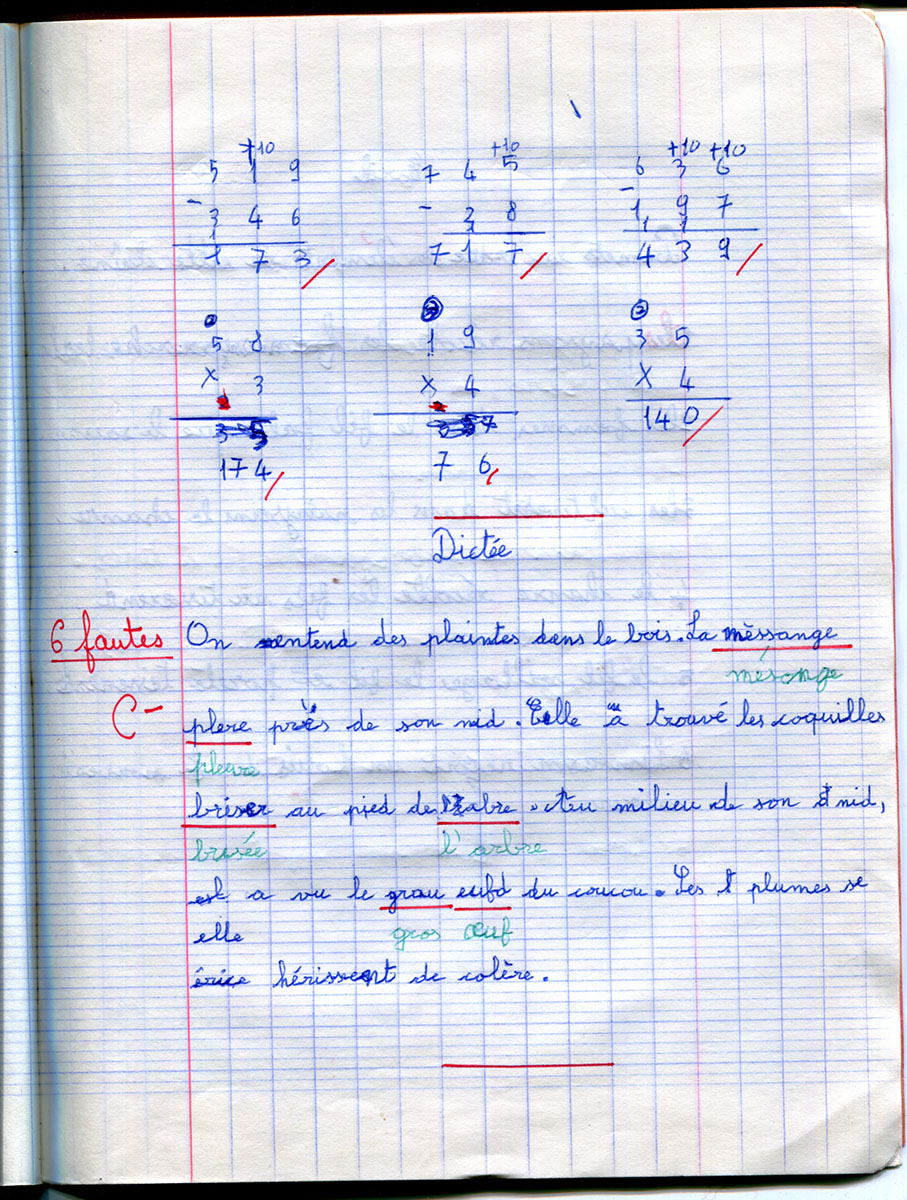 +10 +10 +10 +10
5 1 9 7 4 5 6 3 6
- 3 4 6 - 2 8 - 1 9 7
1 1 1 1
1 7 3 7 1 7 4 3 9
2 3 2
5 8 1 9 3 5
X 3 X 4 X 4
140
174 7 6
Dictée
6 fautes On entend des plaintes dans le bois. La mèssange
mésange
C- plere près de son nid. Elle a trouvé les coquilles
pleure
briser au pied de l'abre. Au milieu de son nid,
brisée l'arbre
a vu le grau eufd du coucou. Les plumes se
elle gros œuf
hérissent de colère.